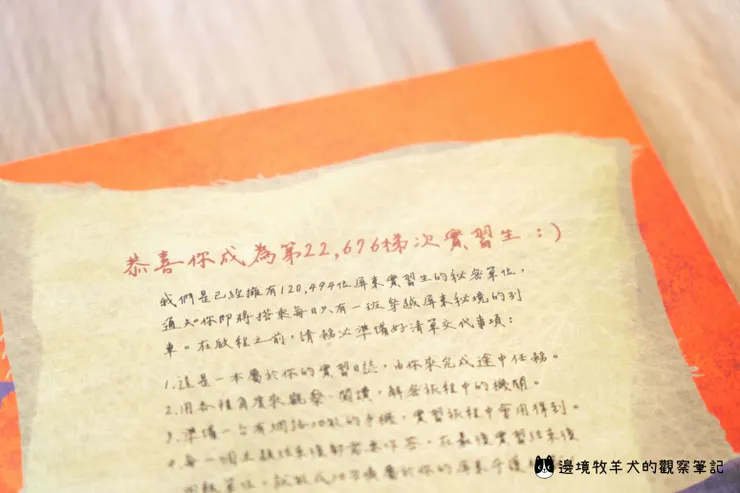 恭喜你成為第22,676梯次實習生 :)
我們是已經擁有120,494位屏東實習生的秘密單位，
通知你即將搭乘每日只有一班穿越屏東秘境的列
車。在啟程之前，請務必準備好清單交代事項：
1.這是一本屬於你的實習日誌，由你來完成途中任務。
2.用各種角度來觀察、閱讀，解密旅程中的機關。
3.準備一台有網路功能的手機，實習旅程中會用得到。
4.每一個主題結束後都需要作答，在最後實習結束後
邊境牧羊犬的觀察筆記